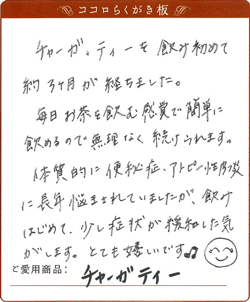 ココロらくがき板
チャーガ、ティーを飲み初めて
約3ヶ月が経ちました。
毎日お茶を飲む感覚で簡単に
飲めるので無理なく続けられます。
体質的に便秘症、アトピー性皮フ炎
に長年悩まされていましたが、飲み
はじめて、少し症状が緩和した気
がします。とても嬉しいです♫
ご愛用商品: チャーガティー